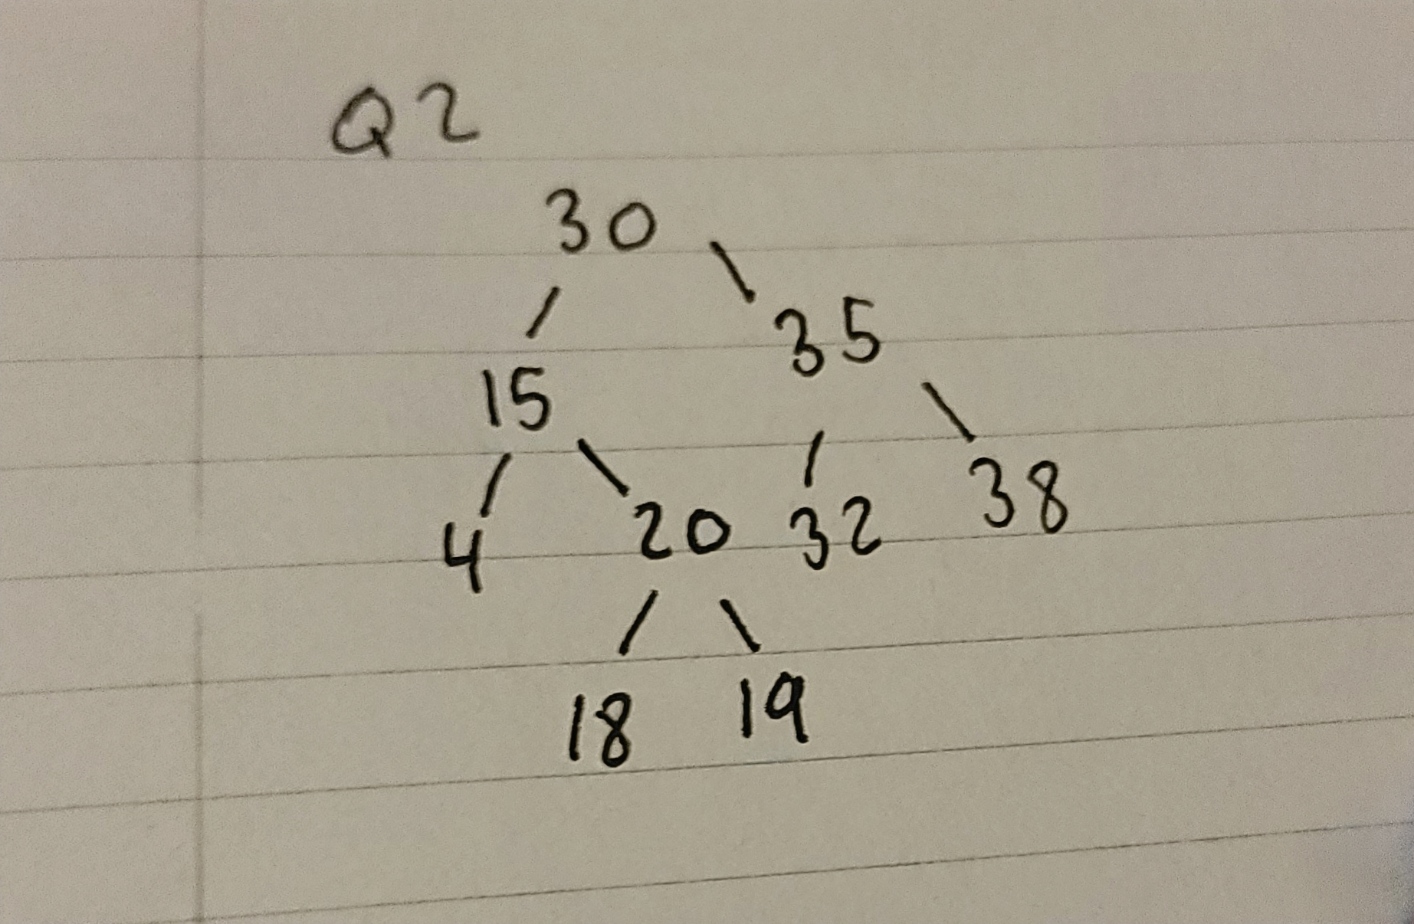 Q2
30
35
15
4 20 32 38
18 19